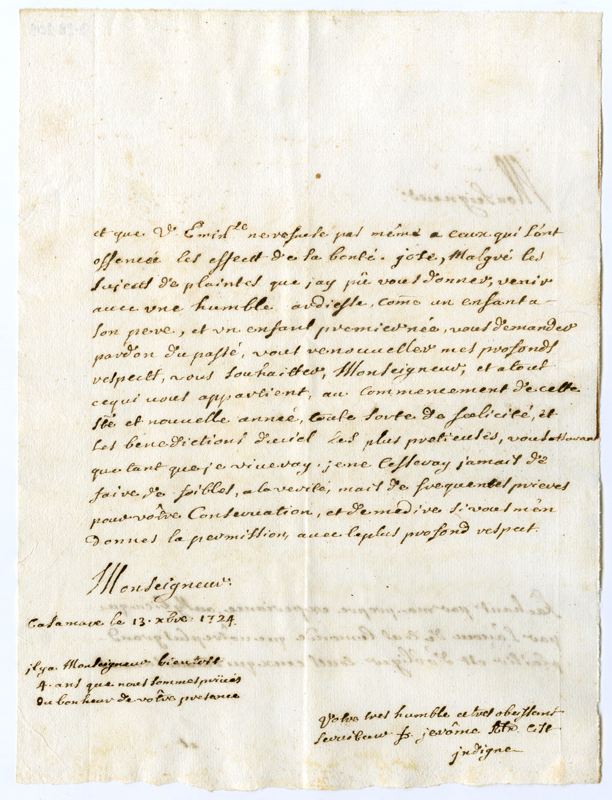 et que V. Emin.ce ne refuse pas même a ceux qui l'ont
offencée les effects de sa bonté. j'ose, Malgré les
sujects de plaintes que jay pû vous donner, venir
avec vne humble ardiesse, come un enfant a-
son pere, et vn enfant premier née, vous demander
pardon du passé, vous renouveller mes profonds
respects, vous souhaitter, Monseigneur, et a tout
ce qui vous appartient, au commencement de cette
ste et nouvelle année, toute sorte de foelicité, et
les bénedictions du ciel les plus pretieuses, vous assurant
que tant que je viveray, je ne cesseray jamais de
faire, de foibles, a la verité, mais de frequentes prieres
pour vôtre Conservation, et de me dire si vous m'en
donnes la permission, avec le plus profond respect.
Monseigneur.
le 13. xbre. 1724.
il y a Monseigneur bientost
4. ans que nous sommes privés
du bonheur de vôtre presence
Votre tres humble et tres obeissant
serviteur fr. jerôme
jndigne